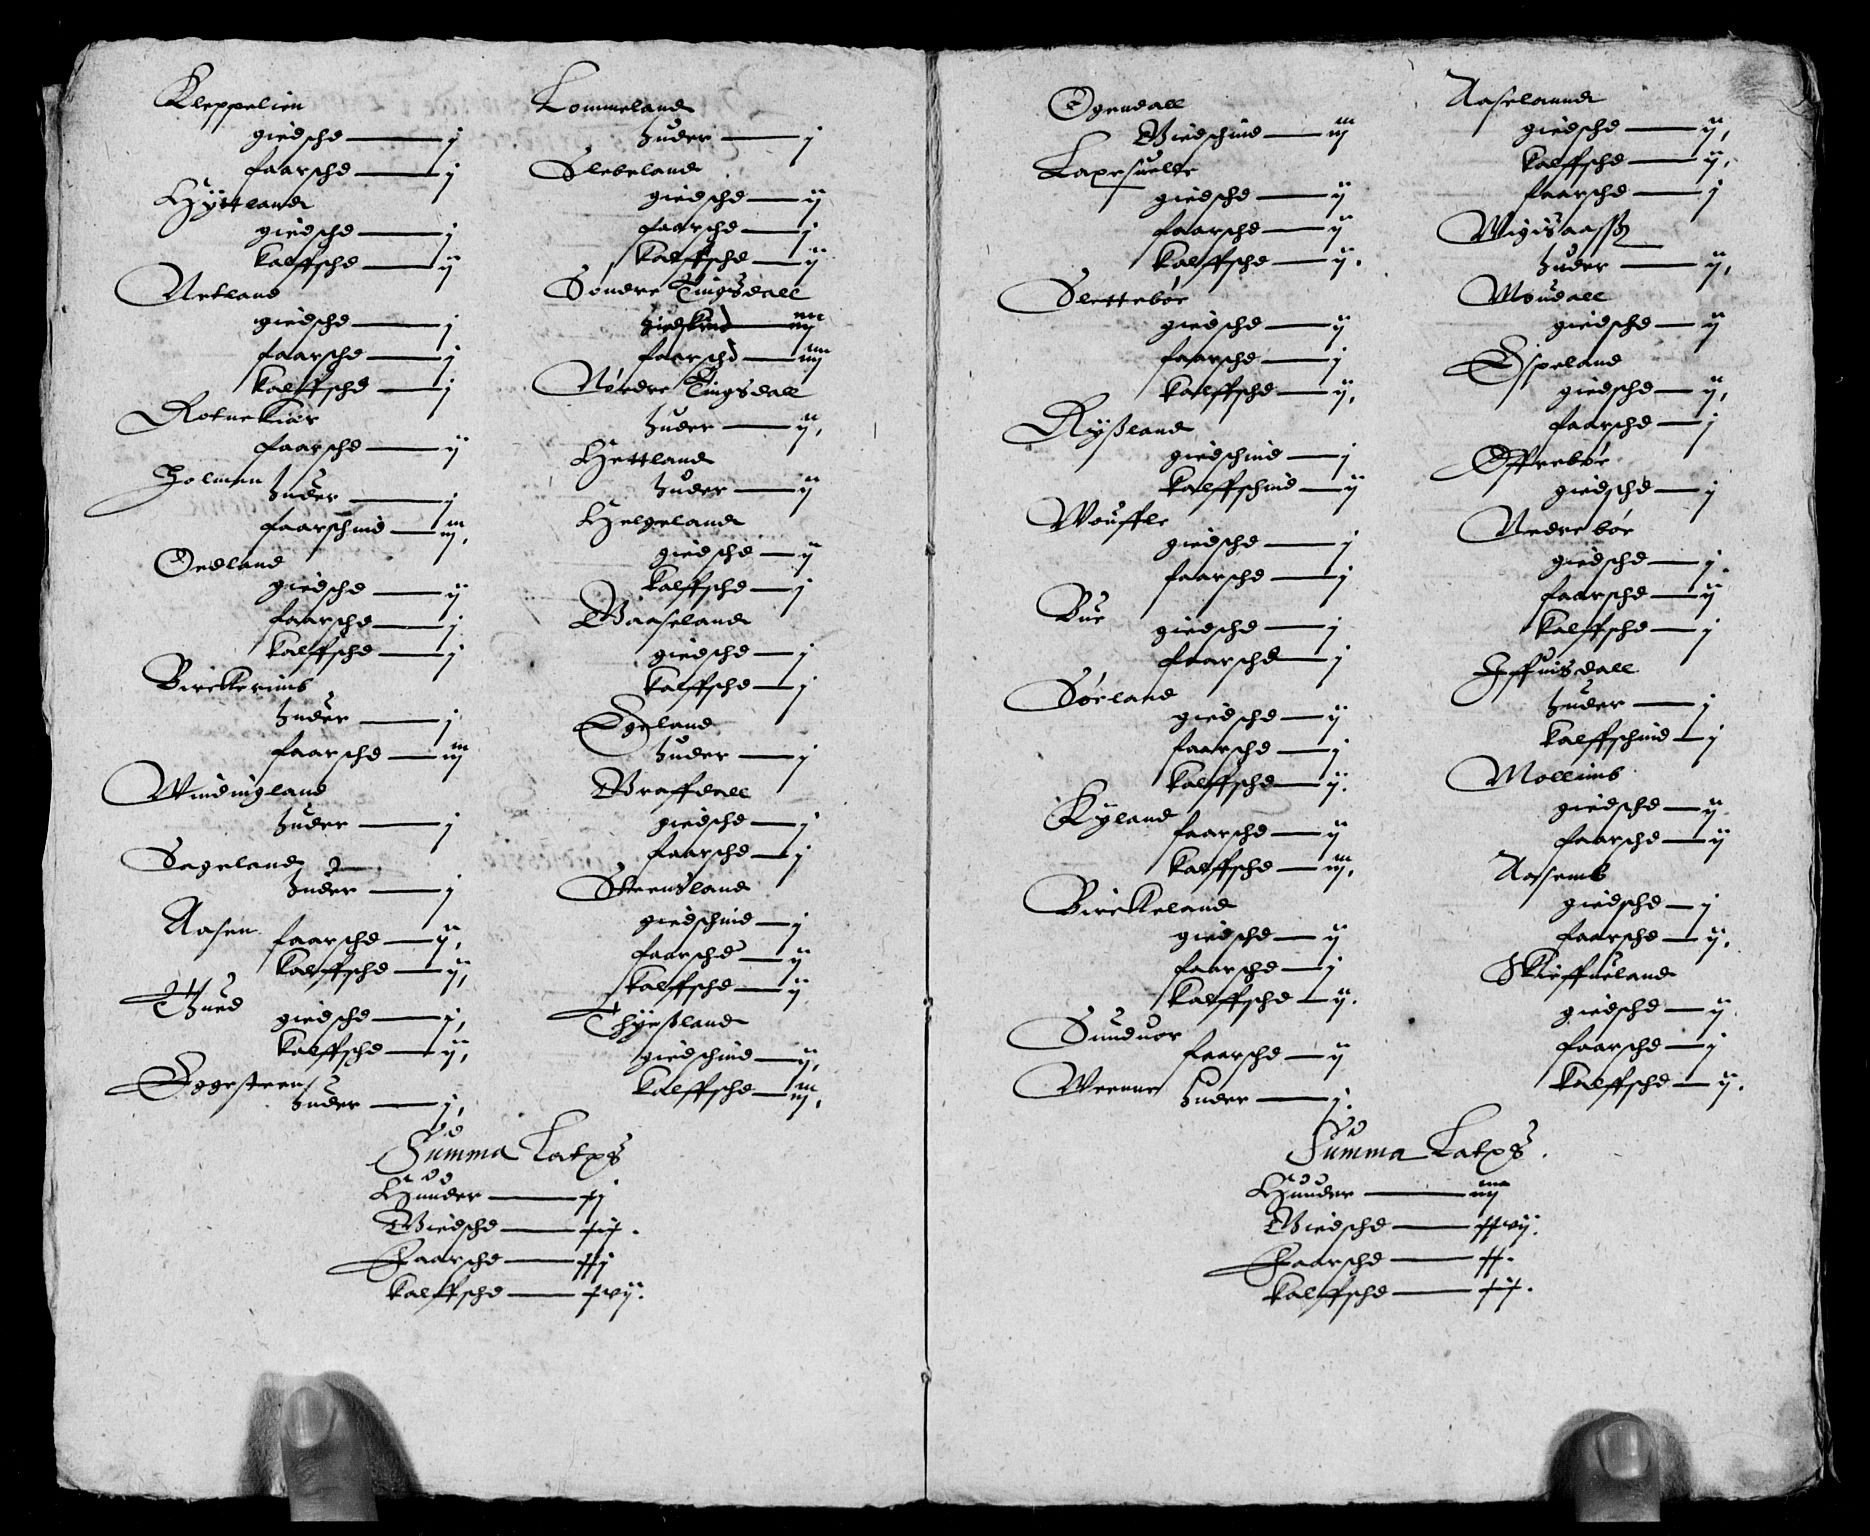 Kleppelien
giedsche — j
faarsche — j
Hyttland
giedsche — j
kalffsche — ij
Netland
giedsche — j
faarsche — j
kalffsche — j
Rotnekier
faarsche — ij
Holmen huder — j
faarschind — iij,
Oedland
giedsche — ij
faarsche — j
kalffsche — j
Birckrimb
huder — j
faarsche — iij
Windingland
huder — j
Sageland
huder — j
Aasen faarsche — ij,
kalffsche — ij,
Thued giedsche — j,
kalffsche — ij,
Eggesteen
huder — j,
Lommeland
huder — j
Slebeland
giedsche — ij
faarsche — j
kalffsche — ij
Søndre Tingsdall
giedskind — iiij
faarschd — iiij
Nørdre Tingsdall
huder — ij,
Hettland
huder — ij
Helgeland
giedsche — ij
kalffsche — j
Waaseland
giedsche — j
kalffsche — j
Egeland
huder — j
Graffdall
giedsche — j
faarsche — j
Steensland
giedschind — j
faarsche — ij
kalffsche — ij
Thyeßland
giedschind — ij,
kalffsche — iij,
Summa Latps
Huuder — xj
Giedsche — xx.
Faarsche — xxj
kalffsche — xvij.
Ogendall
Giedschind — iij
Laxesuelle
giedsche — ij
faarsche — ij
kalffsche — ij.
Slettebøe
giedsche — ij
faarsche — j
kalffsche — ij,
Ryßland
giedschind — j
kalffschind — ij
Wouffle
giedsche — j
faarsche — j
Bue giedsche — j
faarsche — j
Sørland
giedsche — ij
faarsche — j
kalffsche — ij.
Kyland
faarsche — ij
kalffsche — iij,
Birckeland
giedsche — ij
faarsche — j
kalffsche — ij.
Sunduor
faarsche — ij
Weenne huder — j.
Aaselannd
giedsche — ij,
kalffsche — ij,
faarsche — j
Migisaass
huder — ij,
Moudall
giedsche — ij
Espeland
giedsche — ij,
faarsche — j
Offrebøe
giedsche — j
Nedrebøe
giedsche — j.
faarsche — ij
kalffsche — j
Iffuisdall
huder — j
kalffschind — j
Mollimb
giedsche — ij
faarsche — ij
Aasemb
giedsche — j
faarsche — ij,
Skieffueland
giedsche — ij
faarsche — j
kalffsche — ij.
Summa Latps.
Huuder — iiij
Giedsche — xxvij.
Faarsche — xx.
kalffsche — xx.